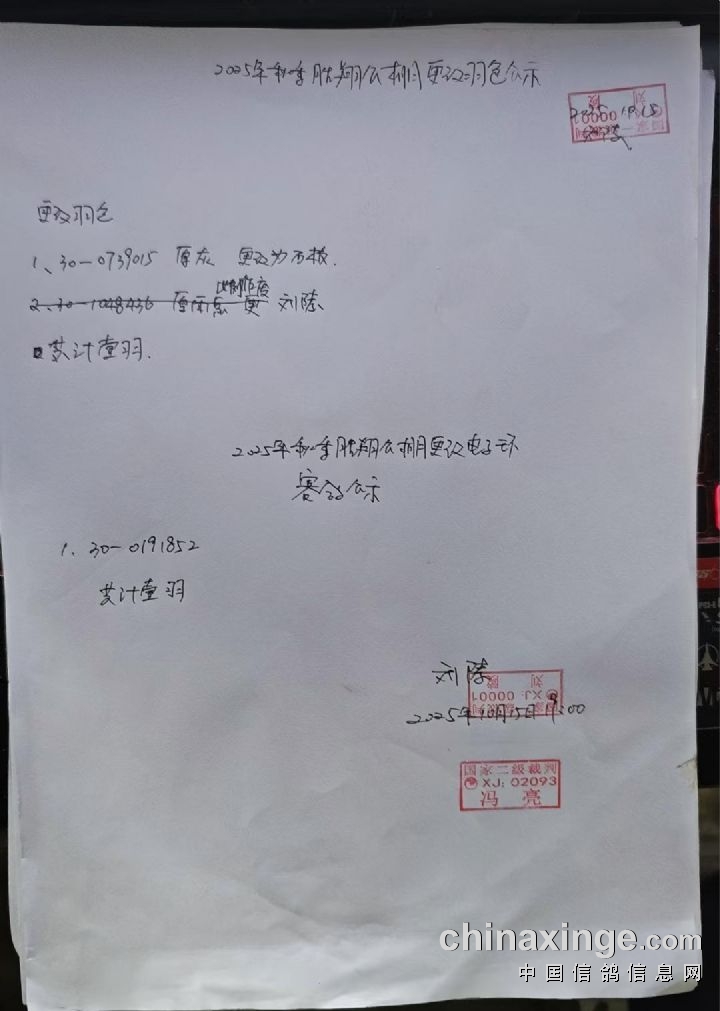 2025年秋季胜翔公棚更改羽色公示
2025.10.15
刘陵
更改羽色
1、30-0739015 原灰 更改为
2、30-1048436 原雨点 更 刘陵
此羽作废
共计壹羽.
2025年秋季胜翔公棚更改电子环
公示
1、30-0191852
共计壹羽
刘陵
XJ: 00001
2025年10月15日 9:00
国家二级裁判
XJ: 02093
冯亮
chinaxinge.com
中国信鸽信息网